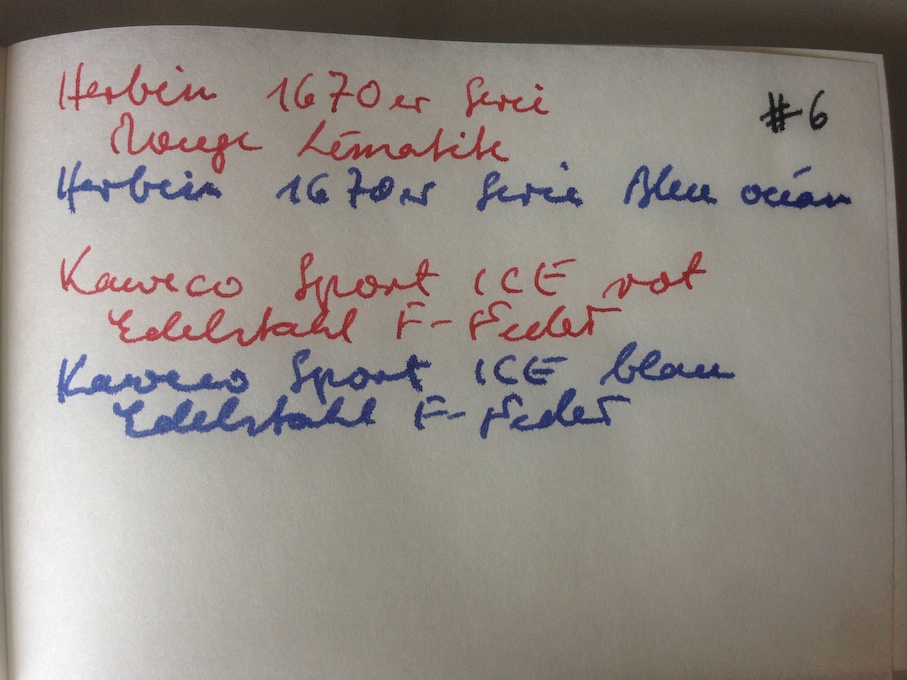 Herbin 1670er Serie
#6
Rouge Hématite
Herbin 1670er Serie Bleu océan
Kaweco Sport ICE rot
Edelstahl F-Feder
Kaweco Sport ICE blau
Edelstahl F-Feder